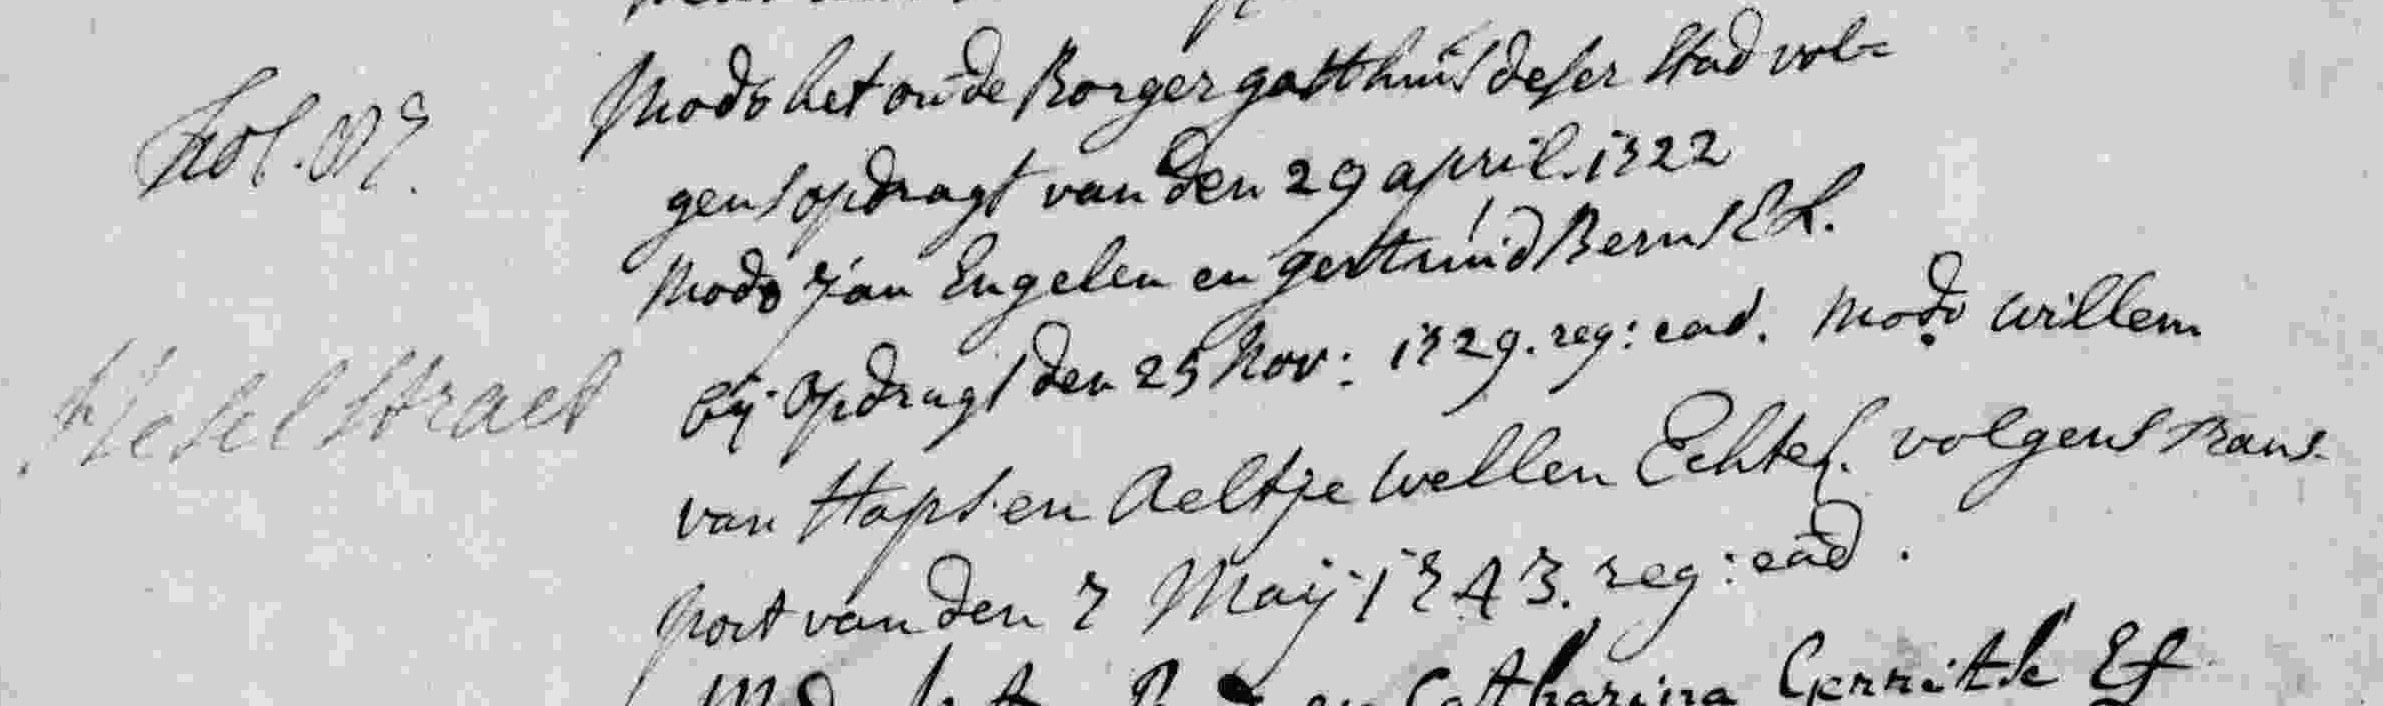 Modo het oude Borger gasthuis deser Stad vol=
Fol. 87.
gens opdragt van den 29 april. 1722
Modo Jan Engelen en gertruid Berns EL.
bij opdragt den 25 Nov: 1729. reg: ead. modo willem
Hesel straet
van Haps en Aeltje Wellen Echtel. volgens Trans-
port van den 7 Maij 1743. reg: ead.
en Catharina Gerritse Ef